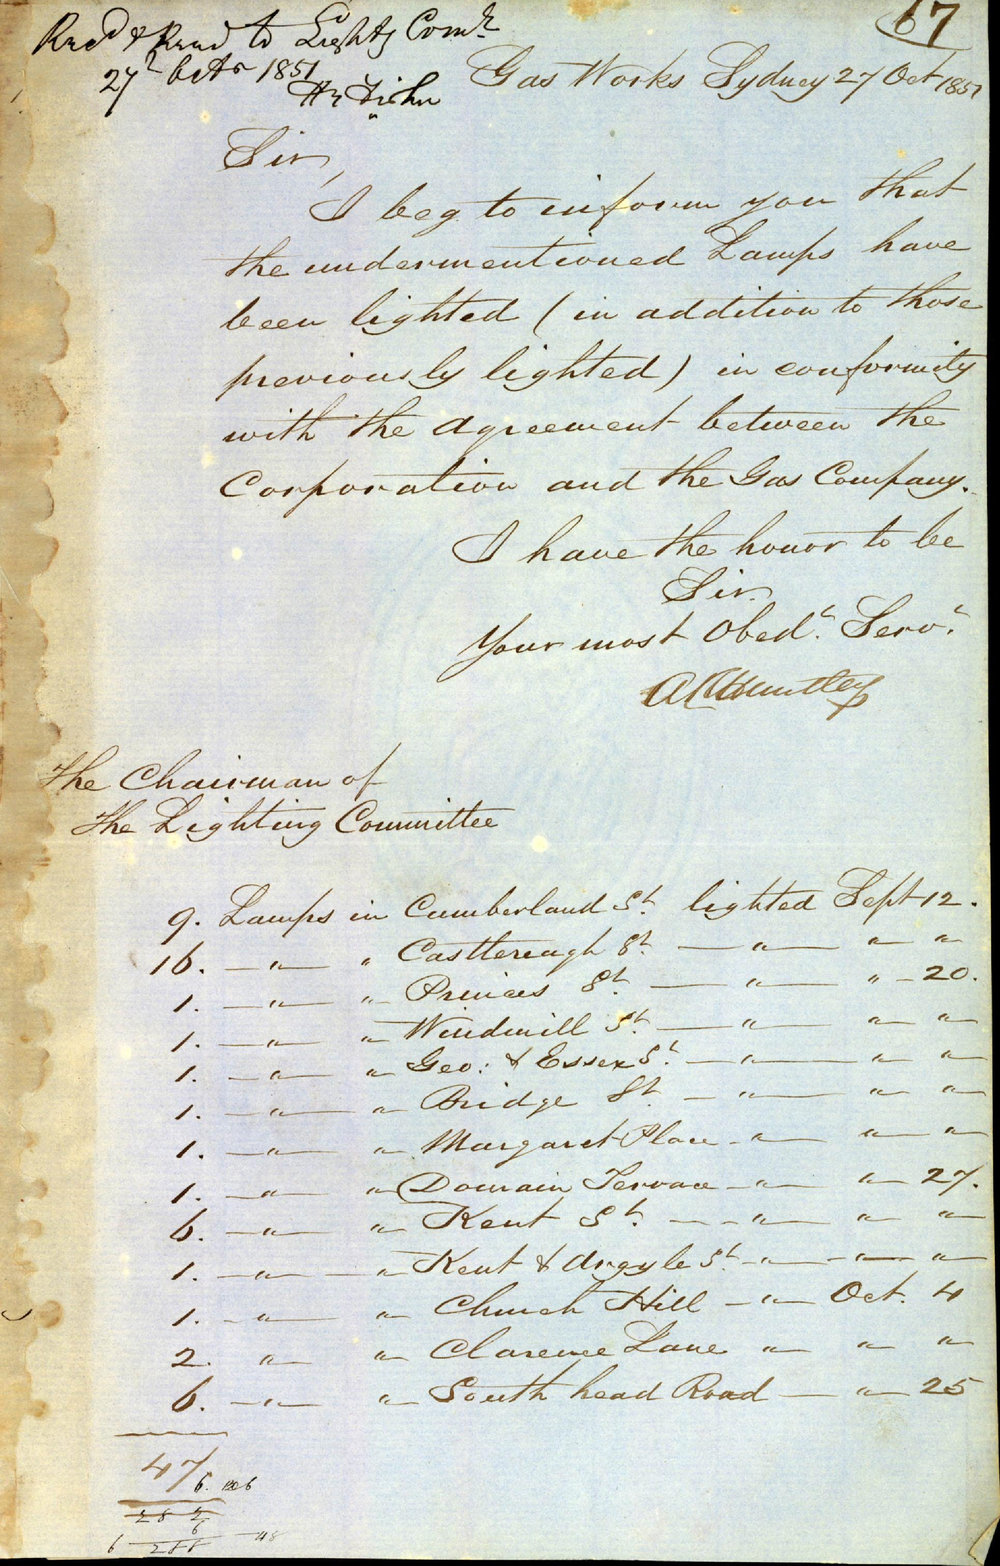 67
Recd & Read to Lightg Comte
27th Octr 1851
Gas Works Sydney 27 Oct 1851
Sir,
I beg to inform you that
the undermentioned Lamps have
been lighted (in addition to those
previously lighted) in conformity
with the Agreement between the
Corporation and the Gas Company.
I have the honor to be
Sir.
Your most Obedt. Servt.
The Chairman of
the Lighting Committee
9. Lamps in Cumberland St. lighted Sept 12.
16. — " — " Castlereagh St. — " — " "
1. — " — " Princes St. — " — " — 20.
1. — " — " Windmill St. — " — " "
1. — " — " Geo: & Essex St. — " — " "
1. — " — " Bridge St. — " — " "
1. — " — " Margaret Place — " — " "
1. — " — " Domain Terrace — " — " — 27.
6. — " — " Kent St. — " — " "
1. — " — " Kent & Argyle St. — " — " — "
1. — " — " Church Hill — " — Oct. 4
2. " — " Clarence Lane " — " "
6. — " — " South head Road — " — 25
47